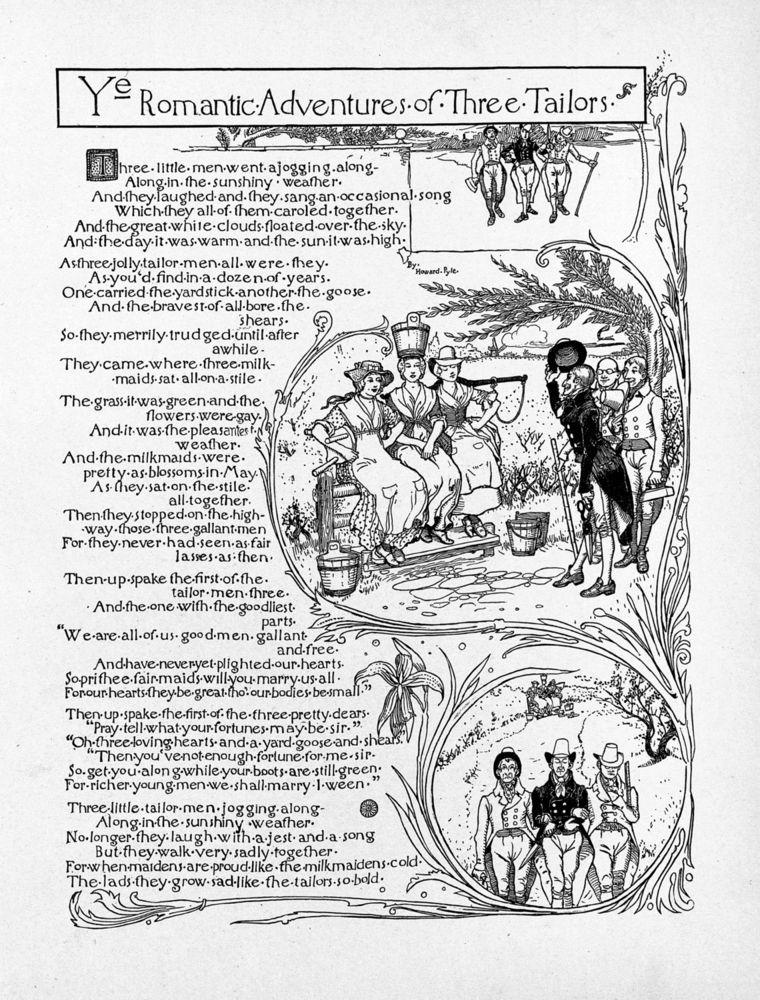 Ye Romantic·Adventures·of·Three·Tailors·
Three·little·men·went·ajogging·along-
Along·in·the·sunshiny·weather·
And·they·laughed·and·they·sang·an·occasional·song
Which·they·all·of·them·caroled·together·
And·the·great·white·clouds·floated·over·the·sky·
And·the·day·it·was·warm·and·the·sun·it·was·high·
By·
Howard·Pyle·
As·three·jolly·tailor·men·all·were·they·
As·you'd·find·in·a·dozen·of·years·
One·carried·the·yardstick·another·the·goose·
And·the·bravest·of·all·bore·the·
shears·
So·they·merrily·trudged·until·after
awhile·
They·came·where·three·milk-
maids·sat·all·on·a·stile·
The·grass·it·was·green·and·the·
flowers·were·gay·
And·it·was·the·pleasantest·
weather·
And·the·milkmaids·were·
pretty·as·blossoms·in·May·
As·they·sat·on·the·stile·
all·together·
Then·they·stopped·on·the·high-
way·those·three·gallant·men
For·they·never·had·seen·as·fair
lasses·as·then·
Then·up·spake·the·first·of·the·
tailor·men·three·
And·the·one·with·the·goodliest·
parts·
"We·are·all·of·us·good·men·gallant·
and·free·
And·have·never·yet·plighted·our·hearts·
So·prithee·fair·maids·will·you·marry·us·all·
For·our·hearts·they·be·great·tho'·our·bodies·be·small·"
Then·up·spake·the·first·of·the·three·pretty·dears·
"Pray·tell·what·your·fortunes·may·be·sir·"
"Oh·three·loving·hearts·and·a·yard·goose·and·shears·"
"Then·you've·not·enough·fortune·for·me·sir·
So·get·you·along·while·your·boots·are·still·green·
For·richer·young·men·we·shall·marry·I·ween·"
Three·little·tailor·men·jogging·along-
Along·in·the·sunshiny·weather·
No·longer·they·laugh·with·a·jest·and·a·song
But·they·walk·very·sadly·together·
For·when·maidens·are·proud·like·the·milkmaidens·cold·
The·lads·they·grow·sad·like·the·tailors·so·bold·